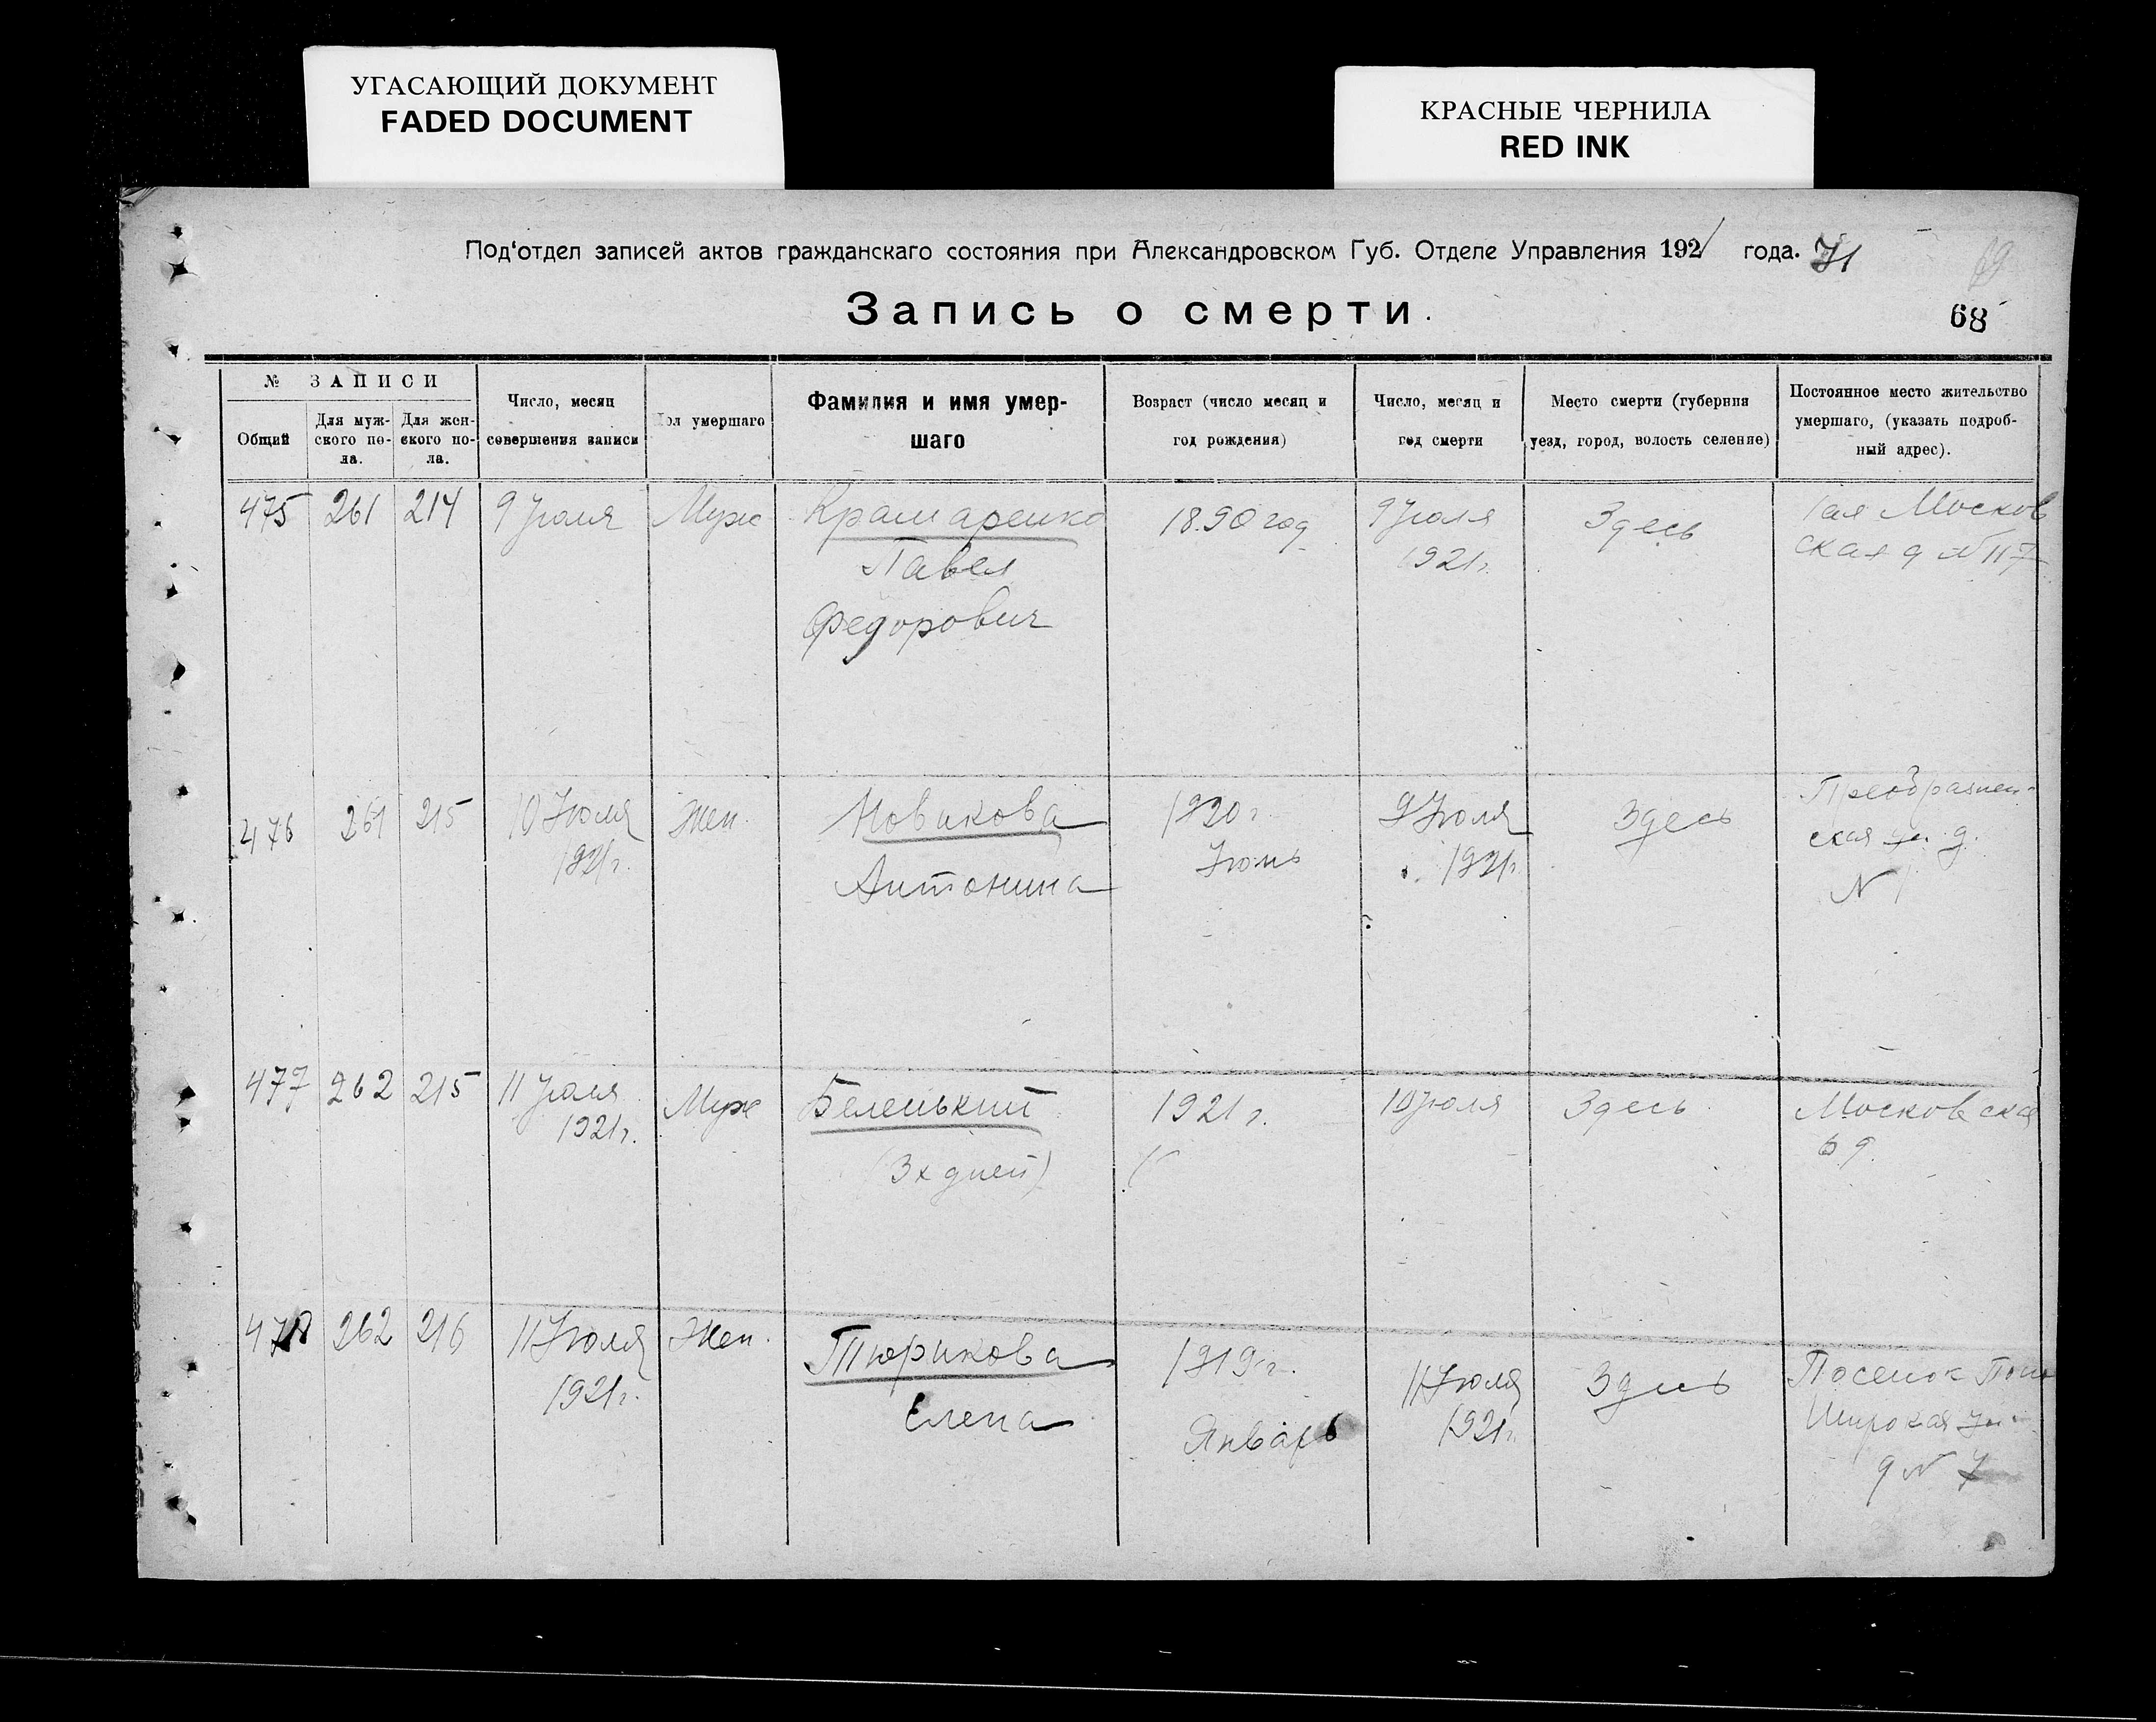 УГАСАЮЩИЙ ДОКУМЕНТ
FADED DOCUMENT
КРАСНЫЕ ЧЕРНИЛА
RED INK
Под‘отдел записей актов гражданскаго состояния при Александровском Губ. Отделе Управления 1921 года. 71
69
Запись о смерти.
68
№ ЗАПИСИ
Общий
Для муж-
ского по-
ла.
Для жен-
ского по-
ла.
Число, месяц
совершения записи
Пол умершаго
Фамилия и имя умер-
шаго
Возраст (число месяц и
год рождения)
Число, месяц и
год смерти
Место смерти (губерния
уезд, город, волость селение)
Постоянное место жительство
умершаго, (указать подроб-
ный адрес).
475 261 214 9 Июля Муж Крамаренко 1890 год 9 Июля Здесь 1ая Москов
Павел 1921г. ская д N 117
Федорович
476 261 215 10 Июля Жен. Новикова 1920 г. 9 Июля Здесь Преображен-
1921г. Июнь 1921г ская ул. д.
Антонина N 1
477 262 215 11 Июля Муж Беленький 1921 г. 10 Июля Здесь Московская
1921г. 69
(3х дней)
478 262 216 11 Июля Жен. Тюрикова 1919 г. 11 Июля Здесь Поселок
1921г. Елена Январь 1921г. Широкая ул.
д N 7